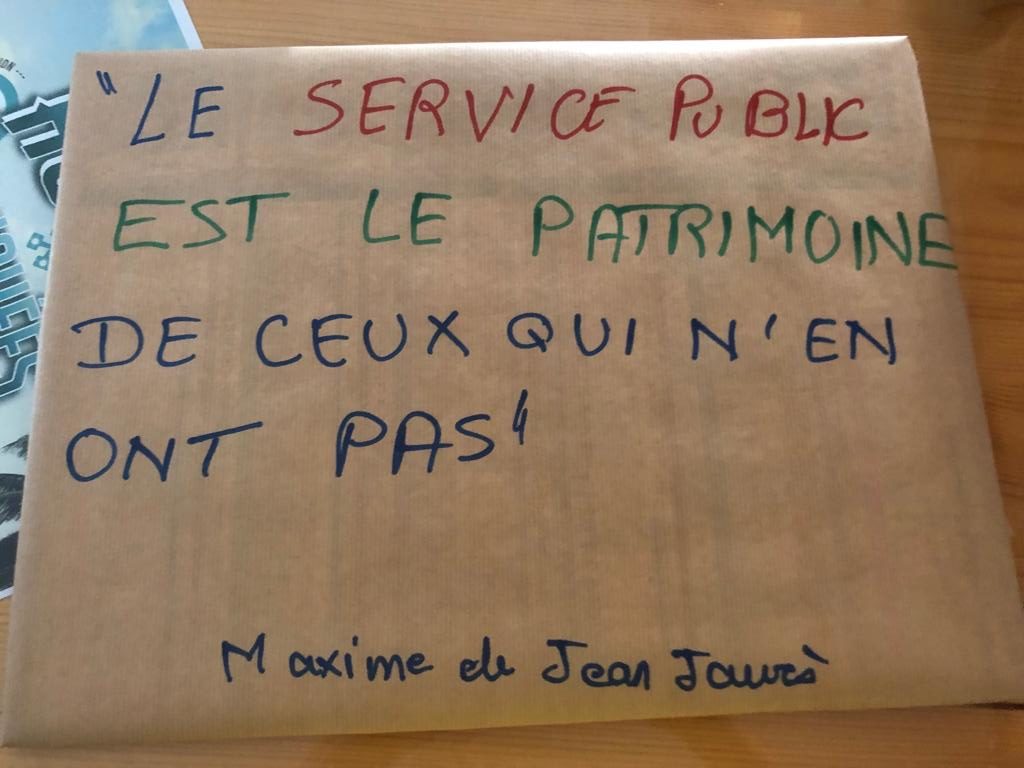 "LE SERVICE PUBLIC
EST LE PATRIMOINE
DE CEUX QUI N'EN
ONT PAS"
Maxime de Jean Jaurès